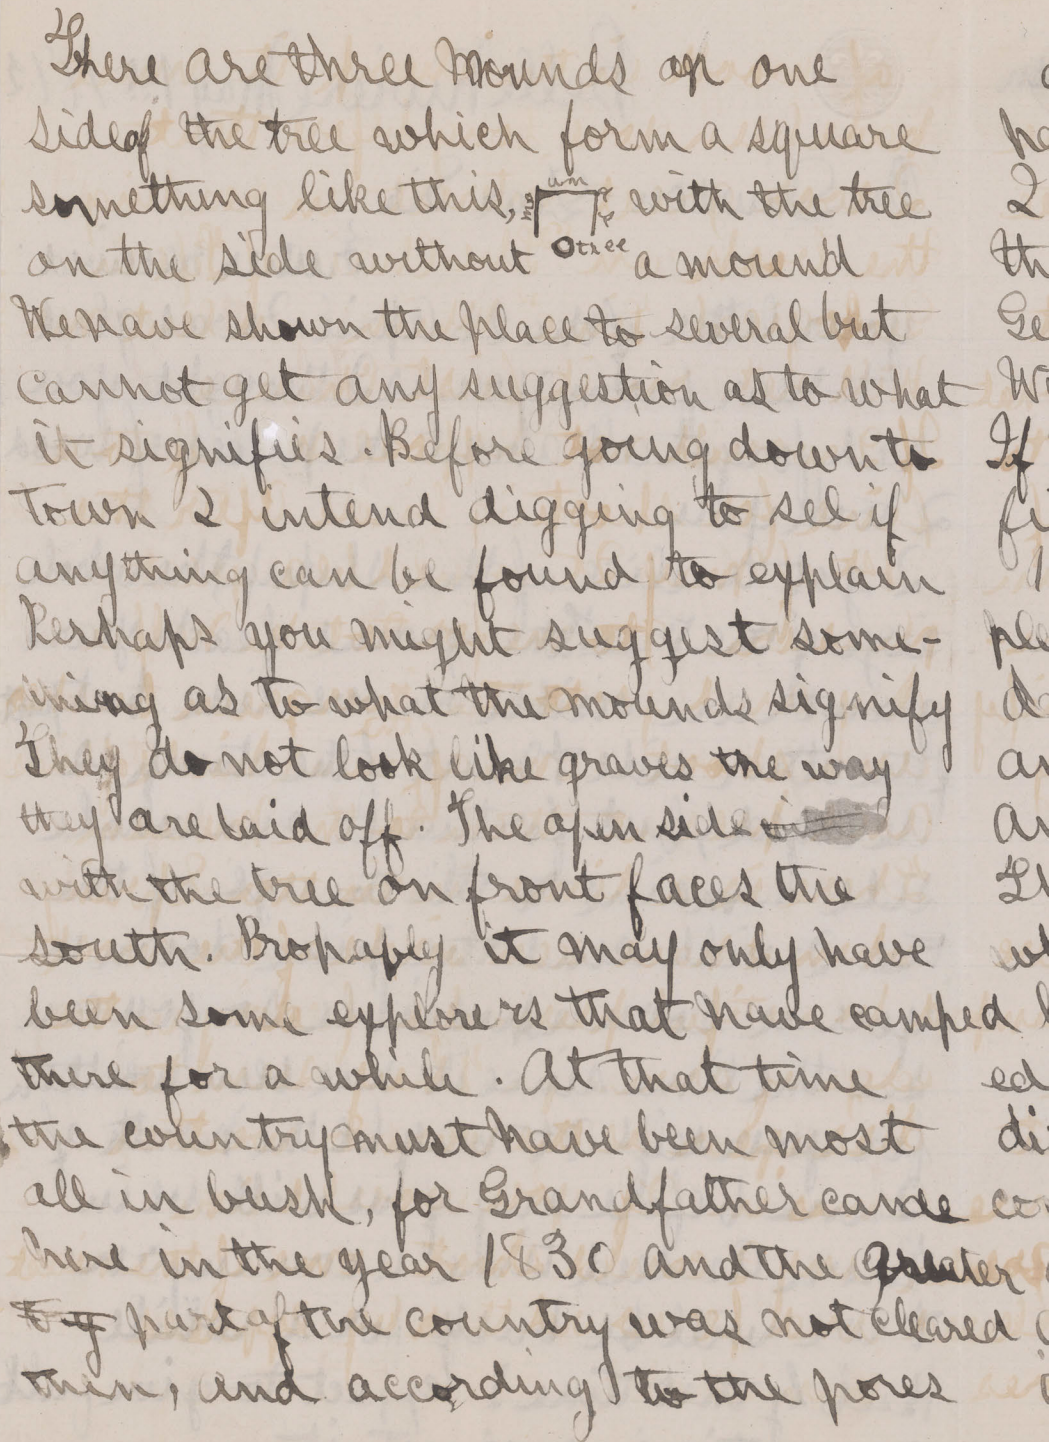 There are three Mounds on one
side of the tree which form a square
something like this, with the tree
tree
on the side without a mound
We have shown the place to several but
cannot get any suggestion as to what
it signifies. Before going down to
Town I intend digging to see if
anything can be found to explain
Perhaps you might suggest some-
thing as to what the mounds signify
They do not look like graves the way
they are laid off. The open side
with the tree on front faces the
south. Propably it may only have
been some explorers that have camped
there for a while. At that time
the country must have been most
all in bush, for Grandfather came
here in the year 1830 and the Greater
part of the country was not cleared
then, and according to the pores